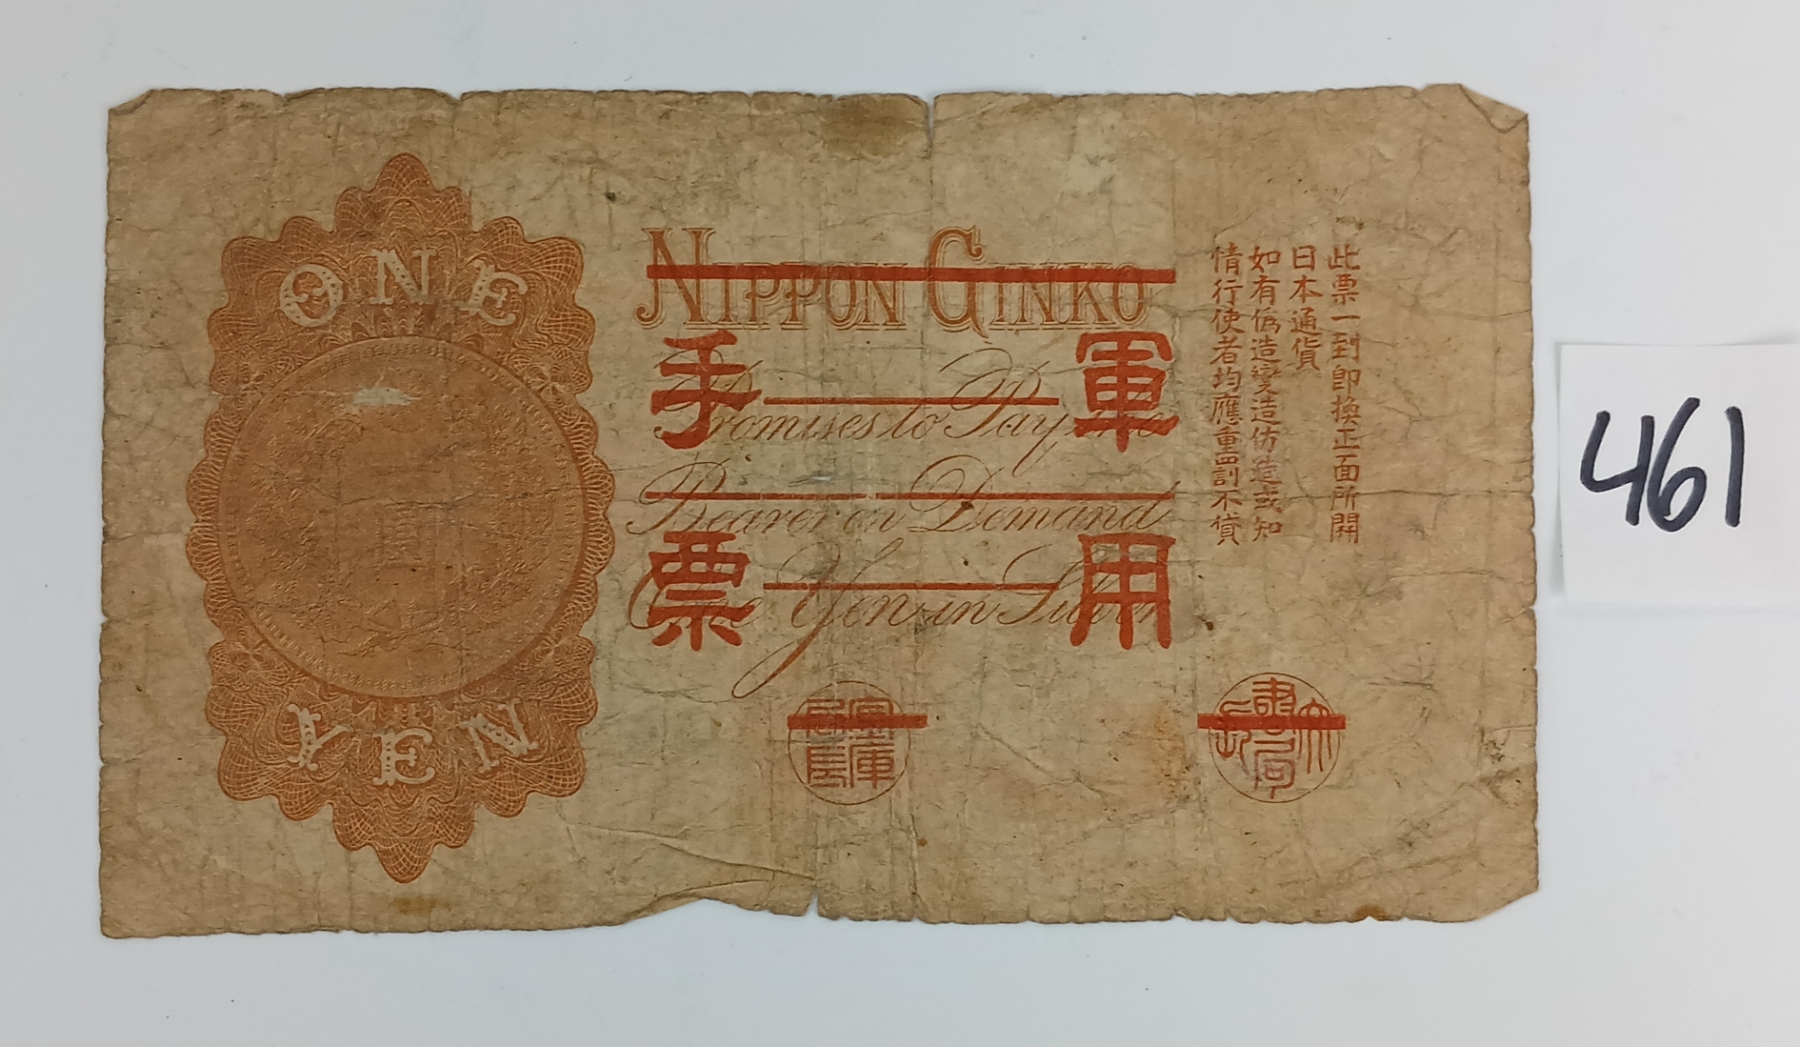 ONE
YEN
NIPPON GINKO
Promises to Pay the
Bearer on Demand
One Yen in Silver
軍用
手票
此票一到即換正面所開
日本通貨
如有偽造變造仿造或知
情行使者均應重罰不貸
一圓
金庫
局長
文書局長
461